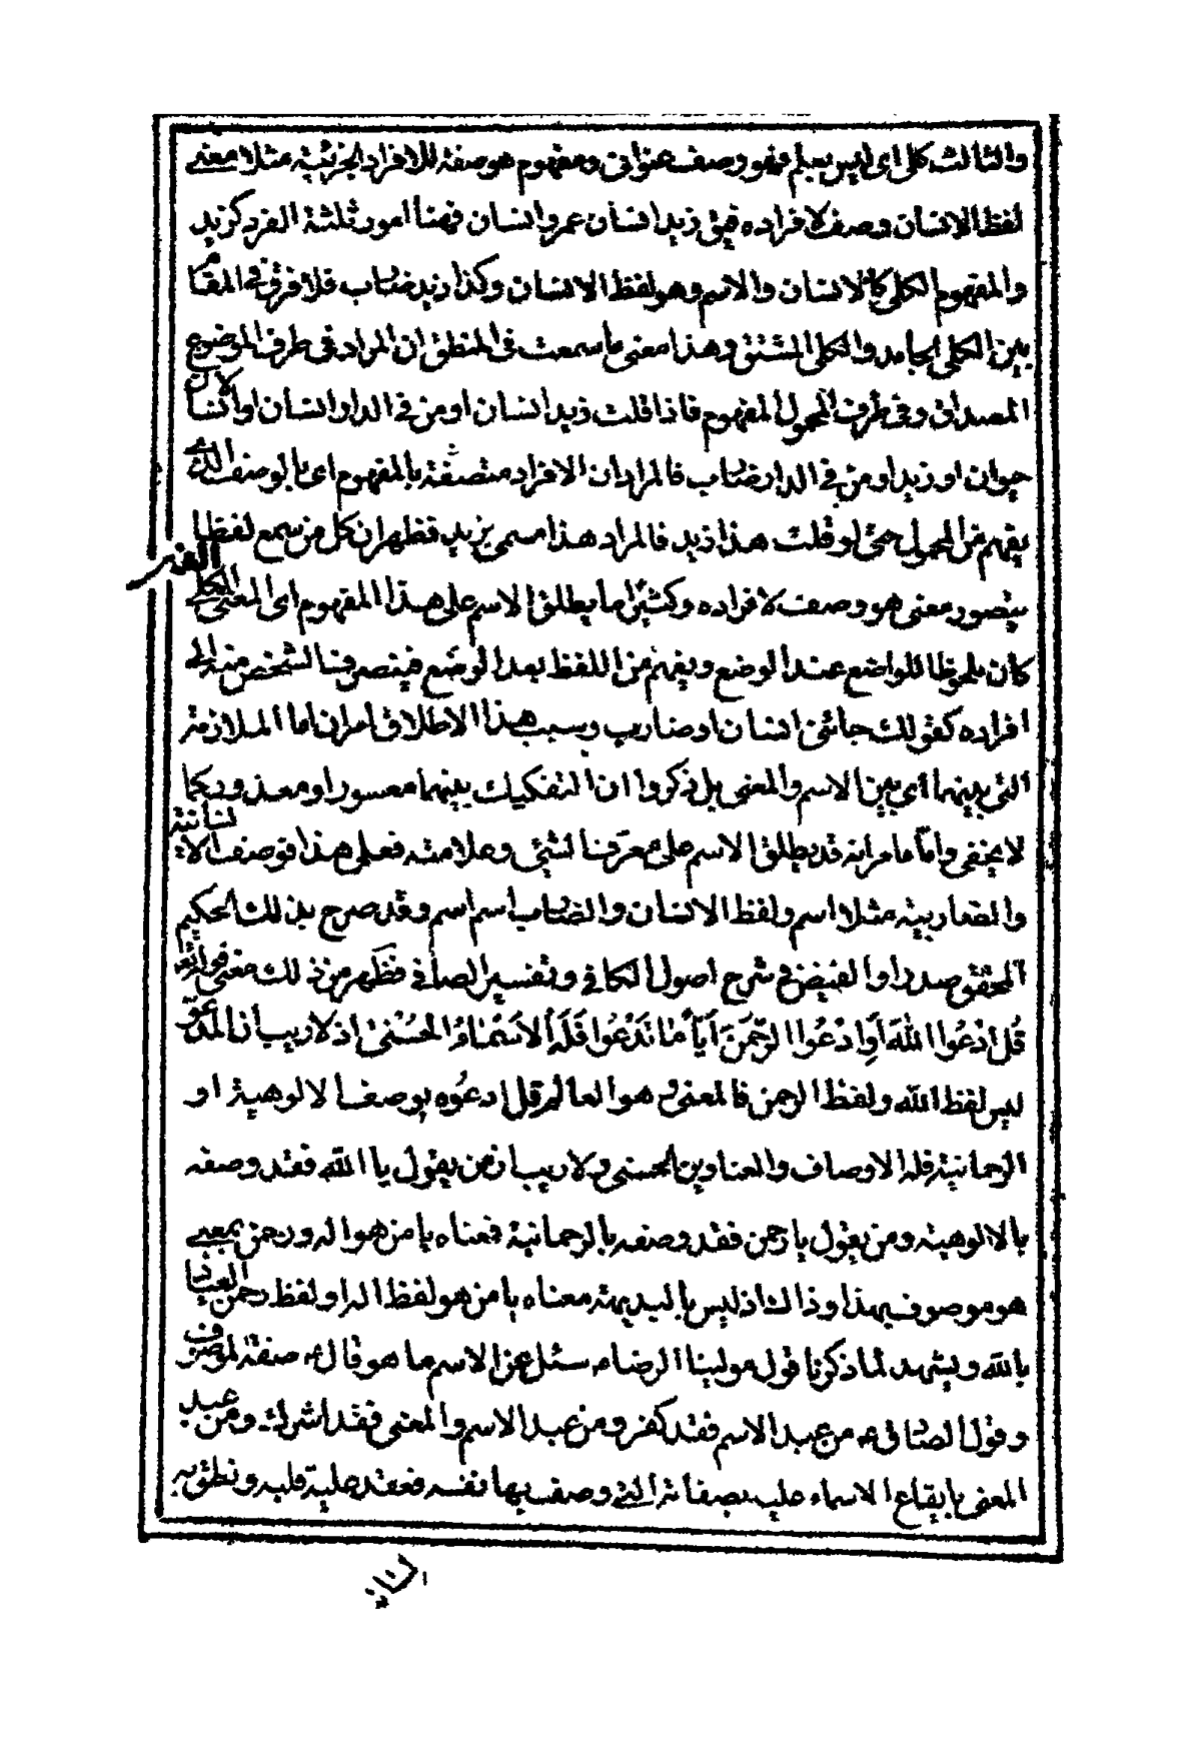 والثالث كلى اى ليس بعلم فهو وصف عنوانى ومفهوم هو صفة للافراد الجزئية مثلا معنى
لفظ الانسان وصف لافراده فيق زيد انسان عمرو انسان فهنا امور ثلثة الفرد كزيد
والمفهوم الكلى كالانسان والاسم وهو لفظ الانسان وكذا زيد ضارب فلا فرق فى المقام
بين الكلى الجامد والكلى المشتق وهذا معنى ما سمعت فى المنطق ان المراد فى طرف الموضوع
المصداق وفى طرف المحمول المفهوم فاذا قلت زيد انسان او من فى الدار انسان او الانسان
حيوان او زيد او من فى الدار ضارب فالمراد ان الافراد متصفة بالمفهوم اى بالوصف الذى
يفهم من المحمول حتى لو قلت هذا زيد فالمراد هذا مسمى بزيد فظهر ان كل من سمع لفظا
يتصور معنى هو وصف لافراده وكثيرا ما يطلق الاسم على هذا المفهوم اى المعنى الكلى
كان ملحوظا للواضع عند الوضع ويفهم من اللفظ بعد الوضع فينصرف الشخص منه الى
افراده كقولك جائنى انسان او ضارب وسبب هذا الاطلاق امران اما الملازمة
التى بينهما اى بين الاسم والمعنى بل ذكروا ان التفكيك بينهما معسور او معذور كما
لا يخفى واما ما مر انه قد يطلق الاسم على معرف الشئ وعلامته فعلى هذا فوصف الانسانية
والضاربية مثلا اسم ولفظ الانسان والضارب اسم اسم وقد صرح بذلك الحكيم
المحقق صدرا والفيض فى شرح اصول الكافى وتفسير الصافى فظهر من ذلك معنى قوله تعالى
قُلِ ادْعُوا اللهَ أَوِ ادْعُوا الرَّحْمنَ أَيّاً مَا تَدْعُوا فَلَهُ الأَسْمَاءُ الحُسْنىٰ اذ لا ريب ان المدعوّ
ليس لفظ الله ولفظ الرحمن فالمعنى هو العالم قل ادعوه بوصف الالوهية او
الرحمانية فله الاوصاف والعناوين الحسنى ولا ريب ان من يقول يا الله فقد وصفه
بالالوهية ومن يقول يا رحمن فقد وصفه بالرحمانية فمعناه يا من هو اله ورحمن بمعنى
هو موصوف بهذا وذاك اذ ليس بالبديهة معناه يا من هو لفظ اله او لفظ رحمن العياذ
بالله ويشهد لما ذكرنا قول مولينا الرضا ء سئل عن الاسم ما هو قال ء صفة لموصوف
وقول الصادق ء من عبد الاسم فقد كفر ومن عبد الاسم والمعنى فقد اشرك ومن عبد
المعنى بايقاع الاسماء عليه بصفاته التى وصف بها نفسه فعقد عليه قلبه ونطق به